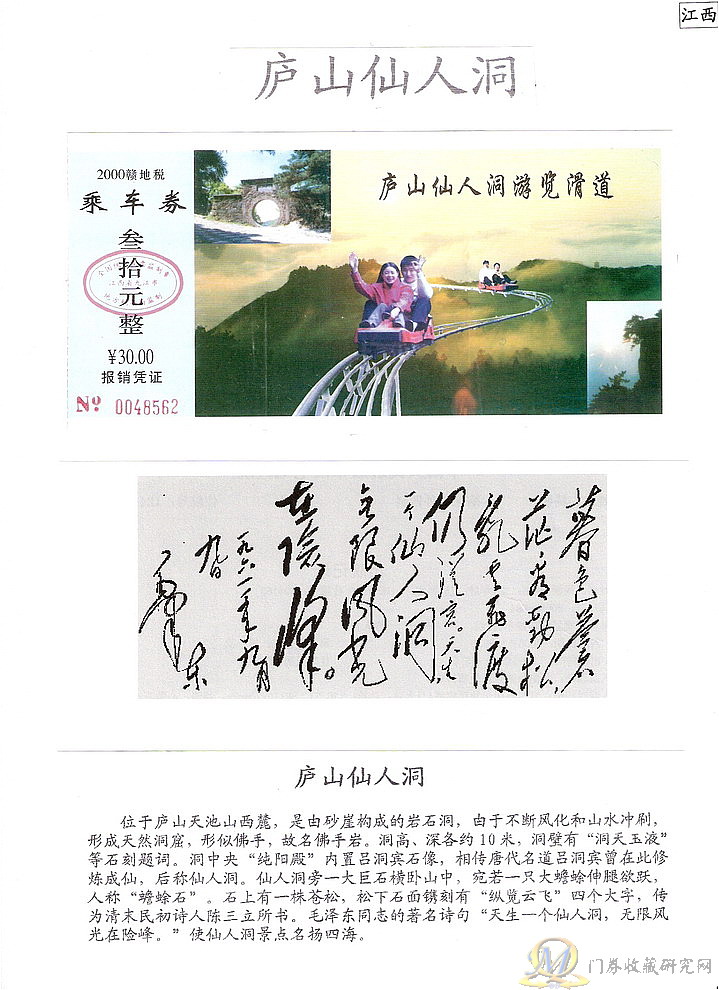 江西
庐山仙人洞
2000赣地税
乘车券
叁拾元整
¥30.00
报销凭证
Nº 0048562
庐山仙人洞游览滑道
暮色苍
茫看劲松,
乱云飞渡
仍从容。天生
一个仙人洞,
无限风光
在险峰。
一九六一年九月
九日
毛泽东
庐山仙人洞
位于庐山天池山西麓，是由砂崖构成的岩石洞，由于不断风化和山水冲刷，
形成天然洞窟，形似佛手，故名佛手岩。洞高、深各约10米，洞壁有“洞天玉液”
等石刻题词。洞中央“纯阳殿”内置吕洞宾石像，相传唐代名道吕洞宾曾在此修
炼成仙，后称仙人洞。仙人洞旁一大巨石横卧山中，宛若一只大蟾蜍伸腿欲跃，
人称“蟾蜍石”。石上有一株苍松，松下石面镌刻有“纵览云飞”四个大字，传
为清末民初诗人陈三立所书。毛泽东同志的著名诗句“天生一个仙人洞，无限风
光在险峰。”使仙人洞景点名扬四海。
门券收藏研究网